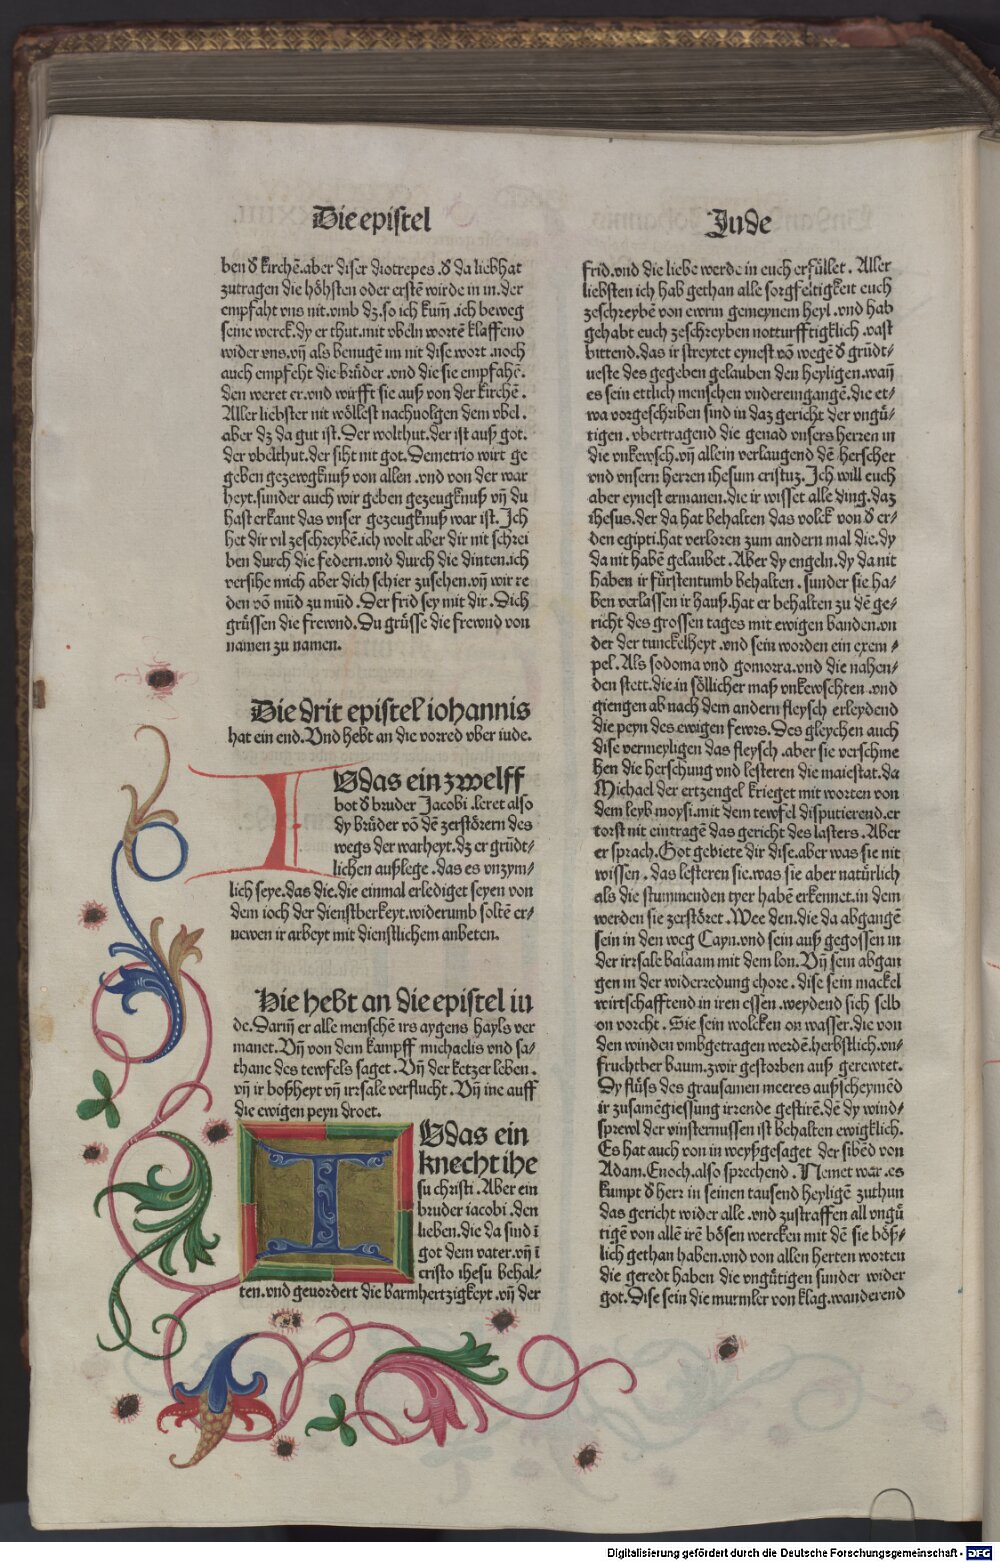 Die epistel
Jude
ben d̕ kirchē.aber diser diotrepes.d̕ da liebhat
zutragen die höhsten oder erstē wirde in in.der
empfaht vns nit.vmb dz.so ich kum̄.ich beweg
seine werck.dy er thut.mit vbeln wortē klaffend
wider vns.vn̄ als benugē im nit dise wort.noch
auch empfeht die brüder.vnd die sie empfahē.
den weret er.vnd würfft sie auß von der kirchē.
Aller liebster nit wöllest nachuolgen dem vbel.
aber dz da gut ist.Der wolthut.der ist auß got.
der vbelthut.der siht nit got.Demetrio wirt ge
geben gezewgknuß von allen.vnd von der war
heyt.sunder auch wir geben gezeugknuß vn̄ du
hast erkant das vnser gezeugknuß war ist.Ich
het dir vil zeschreybē.ich wolt aber dir nit schrei
ben durch die federn.vnd durch die dinten.ich
versihe mich aber dich schier zusehen.vn̄ wir re
den vō mūd zu mūd.Der frid sey mit dir.Dich
grüssen die frewnd.Du grüsse die frewnd von
namen zu namen.
Die drit epistel iohannis
hat ein end.Vnd hebt an die vorred vber iude.
IVdas ein zwelff
bot d̕ bruder Jacobi.leret also
dy brüder vō dē zerstörern des
wegs der warheyt.dz er gründt-
lichen außlege.das es vnzym-
lich seye.das die.die einmal erlediget seyen von
dem ioch der dienstberkeyt.widerumb soltē er-
newen ir arbeyt mit dienstlichem anbeten.
Hie hebt an die epistel iu
de.Darin̄ er alle menschē irs aygens hayls ver
manet.Vn̄ von dem kampff michaelis vnd sa-
thane des tewfels saget.Vn̄ der ketzer leben.
vn̄ ir boßheyt vn̄ irrsale verflucht.Vn̄ ine auff
die ewigen peyn droet.
IVdas ein
knecht ihe
su christi.Aber ein
bruder iacobi.den
lieben.die da sind ī
got dem vater.vn̄ ī
cristo ihesu behal-
ten.vnd geuordert die barmhertzigkeyt.vn̄ der
frid.vnd die liebe werde in euch erfüllet.Aller
liebsten ich hab gethan alle sorgfeltigkeit euch
zeschreybē von ewrm gemeynem heyl.vnd hab
gehabt euch zeschreyben notturfftigklich.vast
bittend.das ir streytet eynest vō wegē d̕ gründt-
ueste des gegeben gelauben den heyligen.wan̄
es sein ettlich menschen vndereingangē.die et-
wa vorgeschriben sind in daz gericht der vngü-
tigen.vbertragend die genad vnsers herren in
die vnkewsch.vn̄ allein verlaugend dē herscher
vnd vnsern herren ihesum cristuz.Ich will euch
aber eynest ermanen.die ir wisset alle ding.daz
ihesus.der da hat behalten das volck von d̕ er-
den egipti.hat verloren zum andern mal die.dy
da nit habē gelaubet.Aber dy engeln.dy da nit
haben ir fürstentumb behalten.sunder sie ha-
ben verlassen ir hauß.hat er behalten zu dē ge-
richt des grossen tages mit ewigen banden.vn
der der tunckelheyt.vnd sein worden ein exem-
pel.Als sodoma vnd gomorra.vnd die nahen-
den stett.die in söllicher maß vnkewschten.vnd
giengen ab nach dem andern fleysch erleydend
die peyn des ewigen fewrs.Des gleychen auch
dise vermeyligen das fleysch.aber sie verschme
hen die herschung vnd lesteren die maiestat.da
Michael der ertzengel krieget mit worten von
dem leyb moysi.mit dem tewfel disputierend.er
torst nit eintragē das gericht des lasters.Aber
er sprach.Got gebiete dir dise.aber was sie nit
wissen.das lesteren sie.was sie aber natürlich
als die stummenden tyer habē erkennet.in dem
werden sie zerstöret.Wee den.die da abgangē
sein in den weg Cayn.vnd sein auß gegossen in
der irrsale balaam mit dem lon.Vn̄ sein abgan
gen in der widerredung chore.dise sein mackel
wirtschafftend in iren essen.weydend sich selb
on vorcht.Sie sein wolcken on wasser.die von
den winden vmbgetragen werdē.herbstlich.vn-
fruchtber baum.zwir gestorben auß gerewtet.
Dy flüß des grausamen meeres außscheymēd
ir zusamēgiessung irrende gestirē.dē dy wind-
sprewl der vinsternussen ist behalten ewigklich.
Es hat auch von in weyßgesaget der sibēd von
Adam.Enoch.also sprechend.Nemet war.es
kumpt d̕ herr in seinen tausend heyligē zuthun
das gericht wider alle.vnd zustraffen all vngü
tigē von allē irē bösen wercken mit dē sie böß-
lich gethan haben.vnd von allen herten worten
die geredt haben die vngütigen sunder wider
got.Dise sein die murmler von klag.wanderend
Digitalisierung gefördert durch die Deutsche Forschungsgemeinschaft - DFG